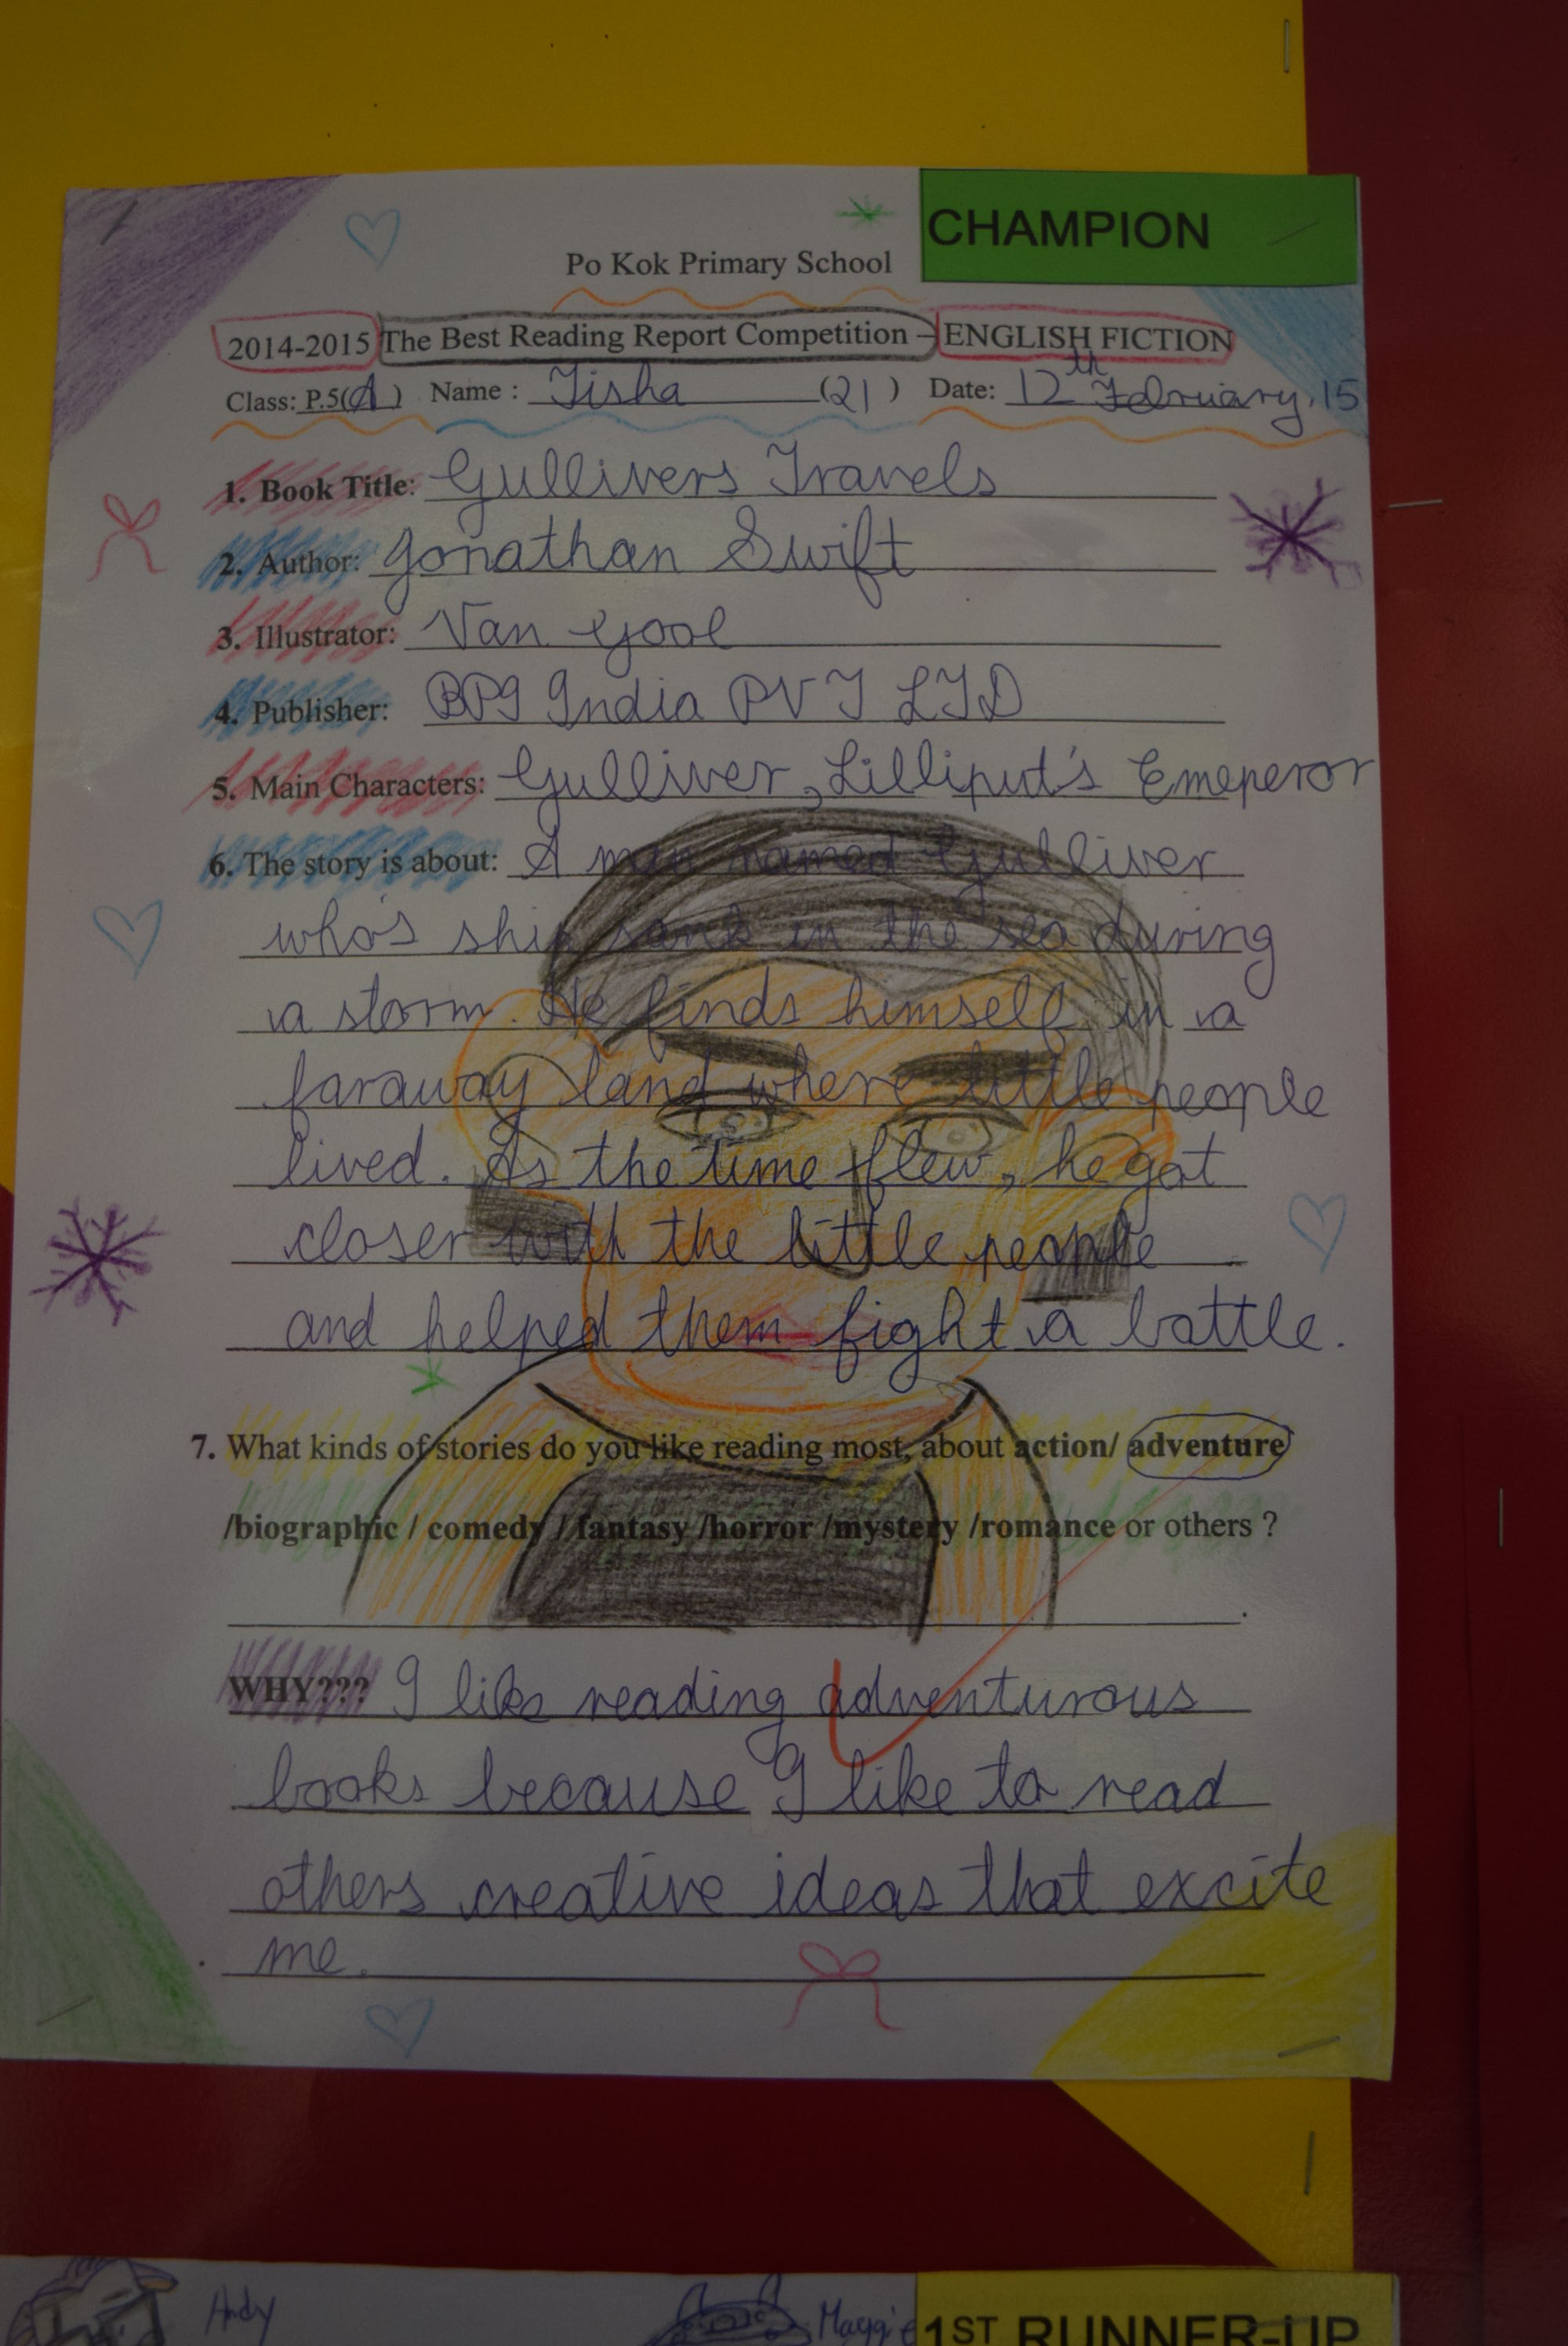 CHAMPION
Po Kok Primary School
2014-2015 The Best Reading Report Competition – ENGLISH FICTION
Class: P.5(A) Name : Tisha (21) Date: 12th February, 15
1. Book Title: Gullivers Travels
2. Author: Jonathan Swift
3. Illustrator: Van Gool
4. Publisher: BPI India PVT LTD
5. Main Characters: Gulliver, Lilliput's Emeperor
6. The story is about: A man named Gulliver
who's ship sank in the sea during
a storm. He finds himself in a
faraway land where little people
lived. As the time flew, he got
closer with the little people
and helped them fight a battle.
7. What kinds of stories do you like reading most, about action/ adventure
/biographic / comedy / fantasy /horror /mystery /romance or others ?
WHY??? I like reading adventurous
books because I like to read
others creative ideas that excite
me.
Andy Maggie 1ST RUNNER-UP